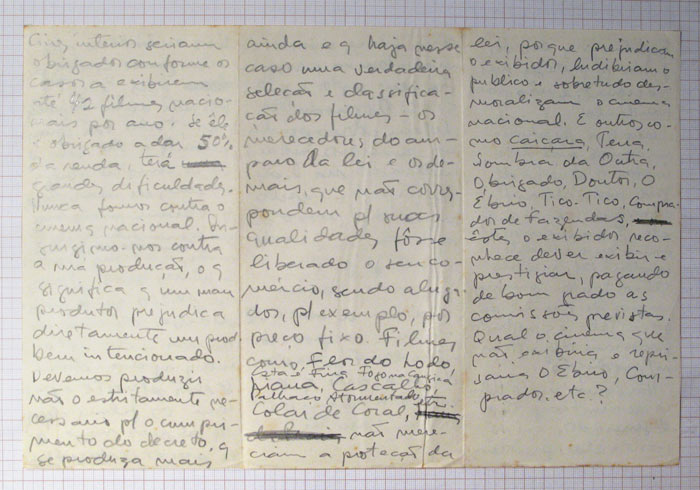 interior seriam
obrigados conforme os
casos a exibirem
até 42 filmes nacio-
nais por ano. Se êle
é obrigado a dar 50%
da renda, terá
grandes dificuldades.
Nunca fomos contra o
cinema nacional. In-
surgimo-nos contra
a má produção, o q
significa q um mau
produtor prejudica
diretamente um prod.
bem intencionado.
Devemos produzir
não o estritamente ne-
cessario p/ o cumpri-
mento do decreto, q
se produza mais
ainda e q haja nesse
caso uma verdadeira
seleção e classifica-
ção dos filmes – os
merecedores do am-
paro da lei e os de-
mais, que não corres-
pondem p/ suas
qualidades fôsse
liberado o seu co-
mércio, sendo aluga-
dos, p/ exemplo, por
preço fixo. Filmes
como Flor do Lodo
Está é Fina Fogo na Canjica
Maria, Cascalho,
Palhaço Atormentado,
Colar de Coral,
não mere-
ciam a proteção da
lei, porque prejudicam
o exibidor, ludibriam o
publico e sobretudo des-
moralizam o cinema
nacional. E outros co-
mo Caiçara, Terra,
Sombra da Outra,
Obrigado, Doutor, O
Ébrio, Tico-Tico, Compra-
dor de Fazendas,
êstes o exibidor reco-
nhece dever exibir e
prestigiar, pagando
de bom grado as
comissões previstas.
Qual o cinema que
não exibiria e repri-
saria O Ébrio, Com-
prador. etc?